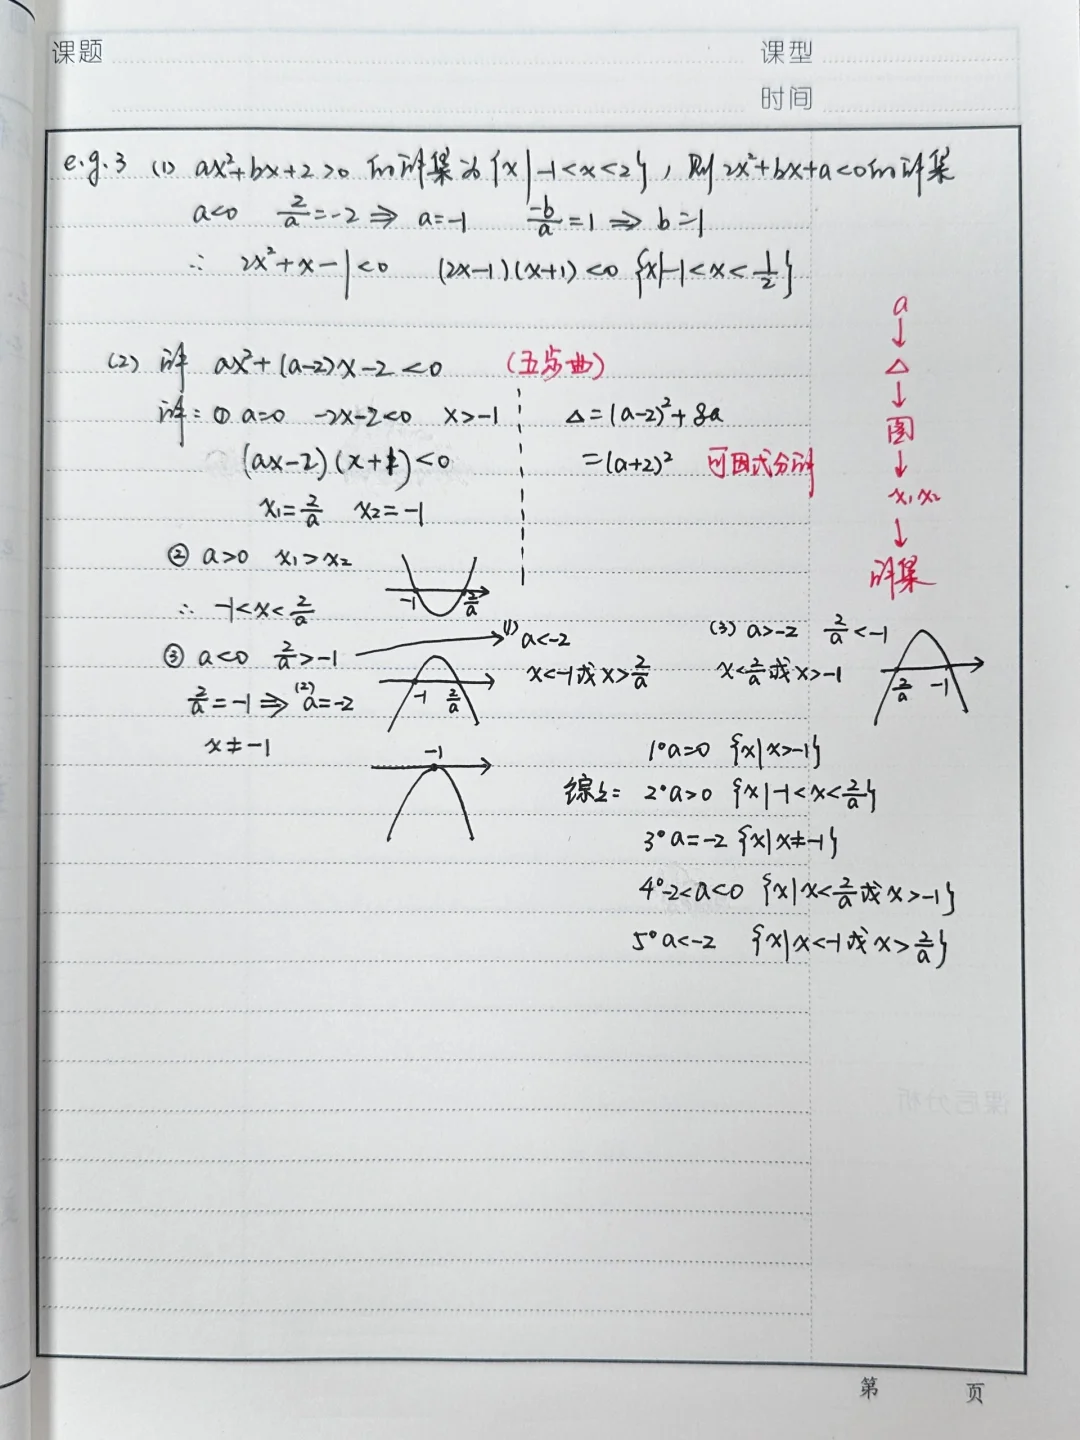 课题 课型
时间
e.g.3 (1) ax²+bx+2>0 的解集为{x|-1<x<2}, 则2x²+bx+a<0的解集
a<0 2/a=-2⇒a=-1 -b/a=1⇒b=1
∴ 2x²+x-1<0 (2x-1)(x+1)<0 {x|-1<x<1/2}
(2) 解 ax²+(a-2)x-2<0 (五步曲)
解: ① a=0 -2x-2<0 x>-1
(ax-2)(x+1)<0
x₁=2/a x₂=-1
△=(a-2)²+8a
=(a+2)² 可因式分解
a
↓
△
↓
图
↓
x₁x₂
↓
解集
② a>0 x₁>x₂
∴ -1<x<2/a
-1 2/a
③ a<0 2/a>-1 → (1) a<-2
x<-1或x>2/a
-1 2/a
2/a=-1⇒(2) a=-2
x≠-1
-1
(3) a>-2 2/a<-1
x<2/a或x>-1
2/a -1
综上: 1°a=0 {x|x>-1}
2°a>0 {x|-1<x<2/a}
3°a=-2 {x|x≠-1}
4°-2<a<0 {x|x<2/a或x>-1}
5°a<-2 {x|x<-1或x>2/a}
第 页